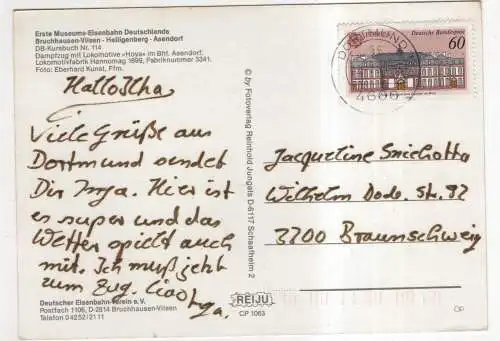 Erste Museums-Eisenbahn Deutschlands
Bruchhausen-Vilsen - Heiligenberg - Asendorf
DB-Kursbuch Nr. 114
Dampfzug mit Lokomotive »Hoya« im Bhf. Asendorf.
Lokomotivfabrik Hannomag 1899, Fabriknummer 3341.
Foto: Eberhard Kunst, Ffm.
Viele Grüße aus
Dortmund sendet
Dir Inga. Hier ist
es super und das
Wetter spielt auch
mit. Ich muß jetzt
zum Zug. Ciao Inga.
Deutscher Eisenbahn-Verein e.V.
Postfach 1106, D-2814 Bruchhausen-Vilsen
Telefon 04252/2111
© by Fotoverlag Reinhold Jungels D-6117 Schaafheim 2
REIJU
CP 1063
Deutsche Bundespost
60
Jacqueline
Wilhelm Bode. Str.
3300 Braunschweig